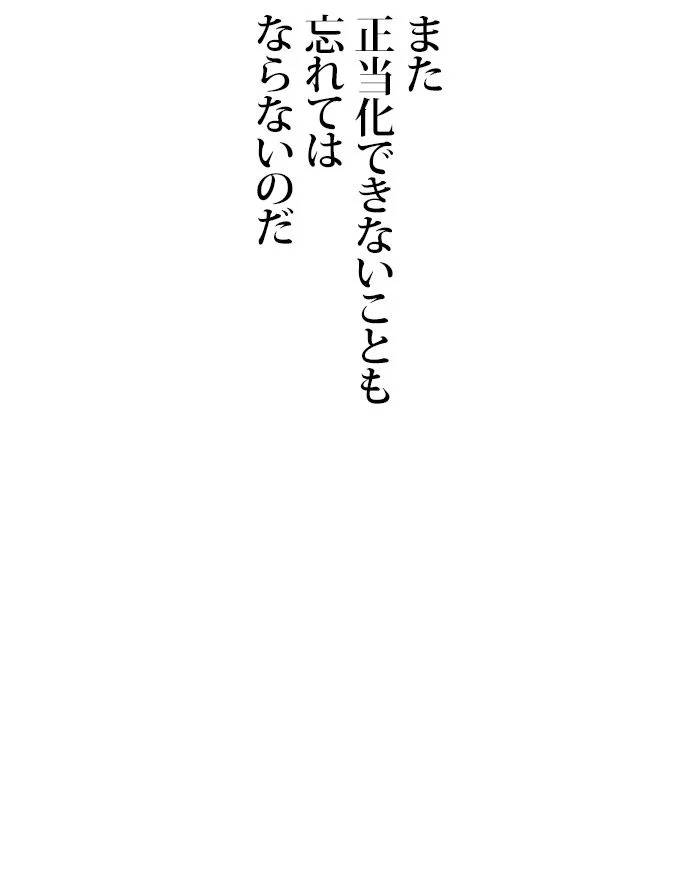 また
正当化できないことも
忘れては
ならないのだ